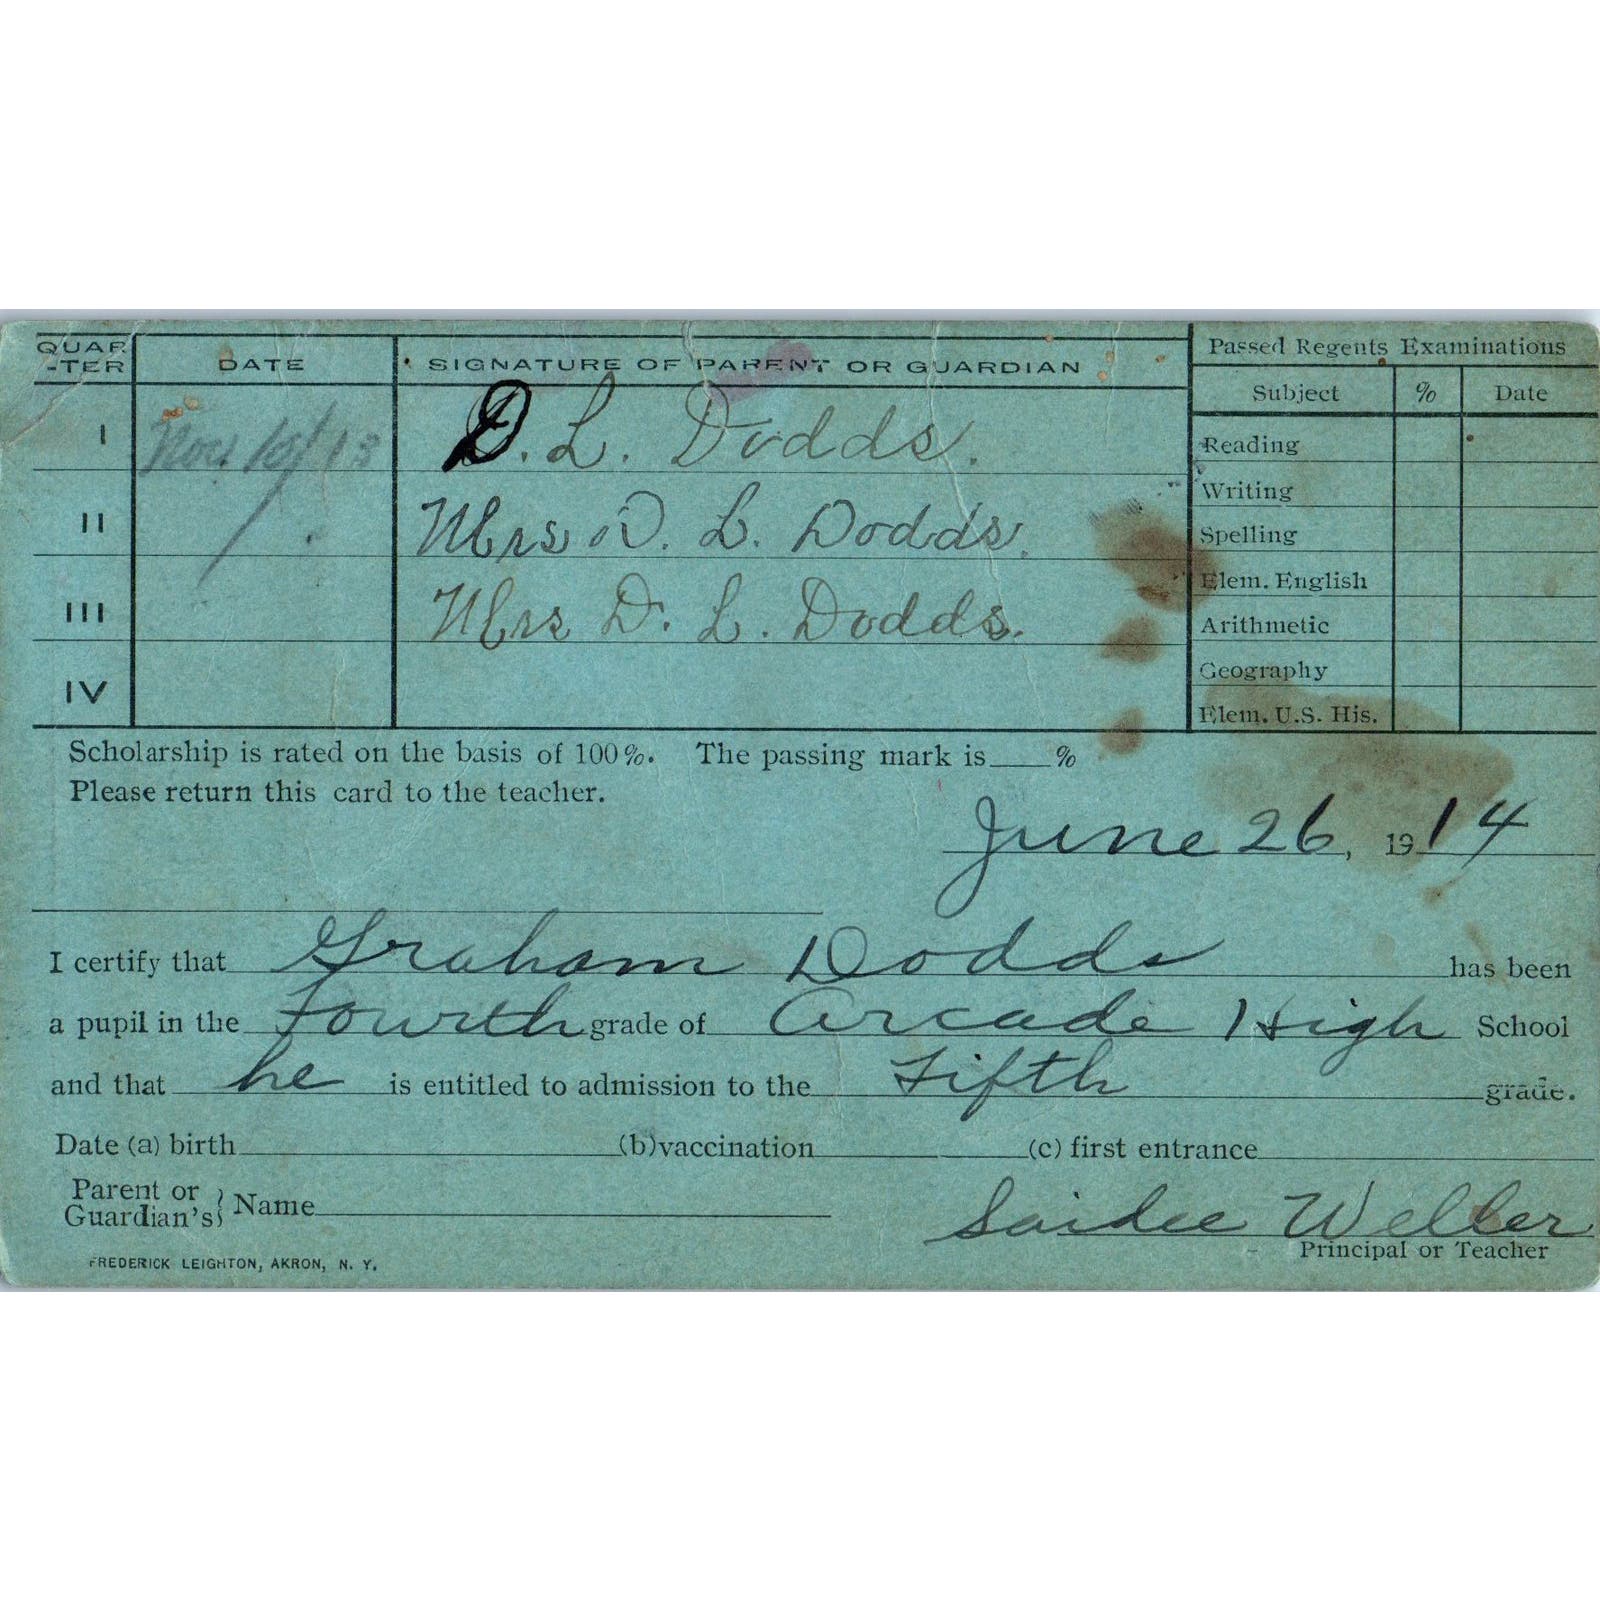 QUAR-TER DATE SIGNATURE OF PARENT OR GUARDIAN
I Nov. /13 D. L. Dodds.
II Mrs D. L. Dodds.
III Mrs D. L. Dodds.
IV
Passed Regents Examinations
Subject % Date
Reading
Writing
Spelling
Elem. English
Arithmetic
Geography
Elem. U.S. His.
Scholarship is rated on the basis of 100%. The passing mark is %
Please return this card to the teacher.
June 26, 1914
I certify that Graham Dodds has been
a pupil in the Fourth grade of Arcade High School
and that he is entitled to admission to the Fifth grade.
Date (a) birth (b) vaccination (c) first entrance
Parent or Guardian's} Name
Saidee Weller
Principal or Teacher
FREDERICK LEIGHTON, AKRON, N. Y.